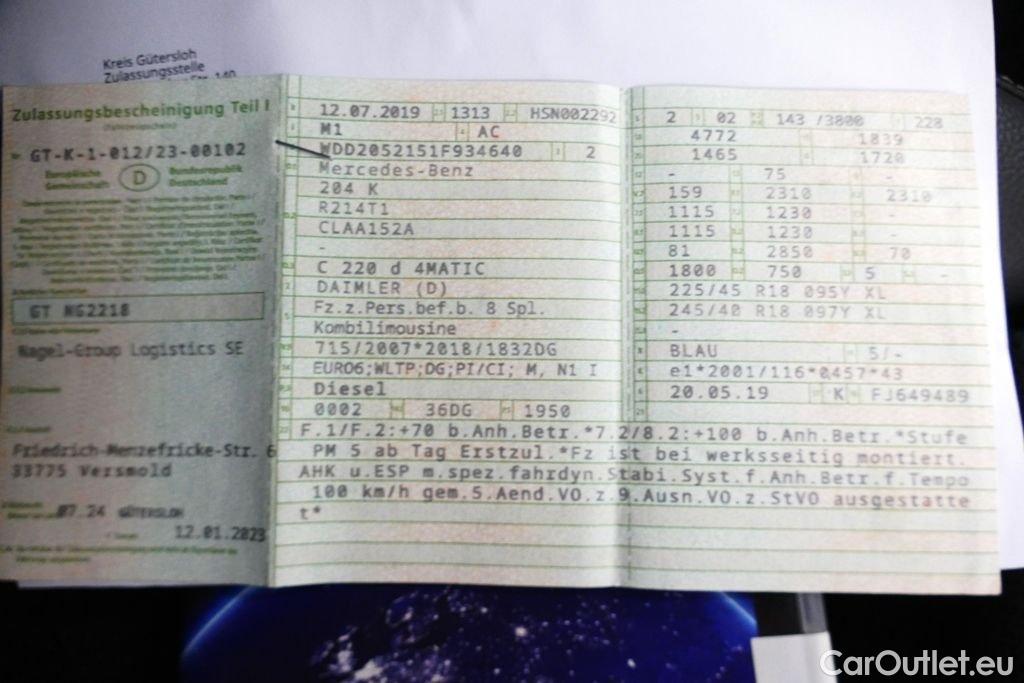 Kreis Gütersloh
Zulassungsstelle
Zulassungsbescheinigung Teil I
GT-K-1-012/23-00102
Europäische Gemeinschaft D Bundesrepublik Deutschland
GT NG2218
Nagel-Group Logistics SE
Friedrich-Menzefricke-Str. 6
33775 Versmold
07.24 GÜTERSLOH
12.01.2023
12.07.2019 1313 HSN002292
M1 AC
WDD2052151F934640 2
Mercedes-Benz
204 K
R214T1
CLAA152A
-
C 220 d 4MATIC
DAIMLER (D)
Fz.z.Pers.bef.b. 8 Spl.
Kombilimousine
715/2007*2018/1832DG
EURO6;WLTP;DG;PI/CI; M, N1 I
Diesel
0002 36DG 1950
2 02 143 /3800 228
4772 1839
1465 1720
- 75 -
159 2310 2310
1115 1230 -
1115 1230 -
81 2850 70
1800 750 5 -
225/45 R18 095Y XL
245/40 R18 097Y XL
-
BLAU 5/-
e1*2001/116*0457*43
20.05.19 K FJ649489
F.1/F.2:+70 b.Anh.Betr.*7.2/8.2:+100 b.Anh.Betr.*Stufe
PM 5 ab Tag Erstzul.*Fz ist bei werksseitig montiert.
AHK u.ESP m.spez.fahrdyn.Stabi.Syst.f.Anh.Betr.f.Tempo
100 km/h gem.5.Aend.VO.z.9.Ausn.VO.z.StVO ausgestatte
t*
CarOutlet.eu